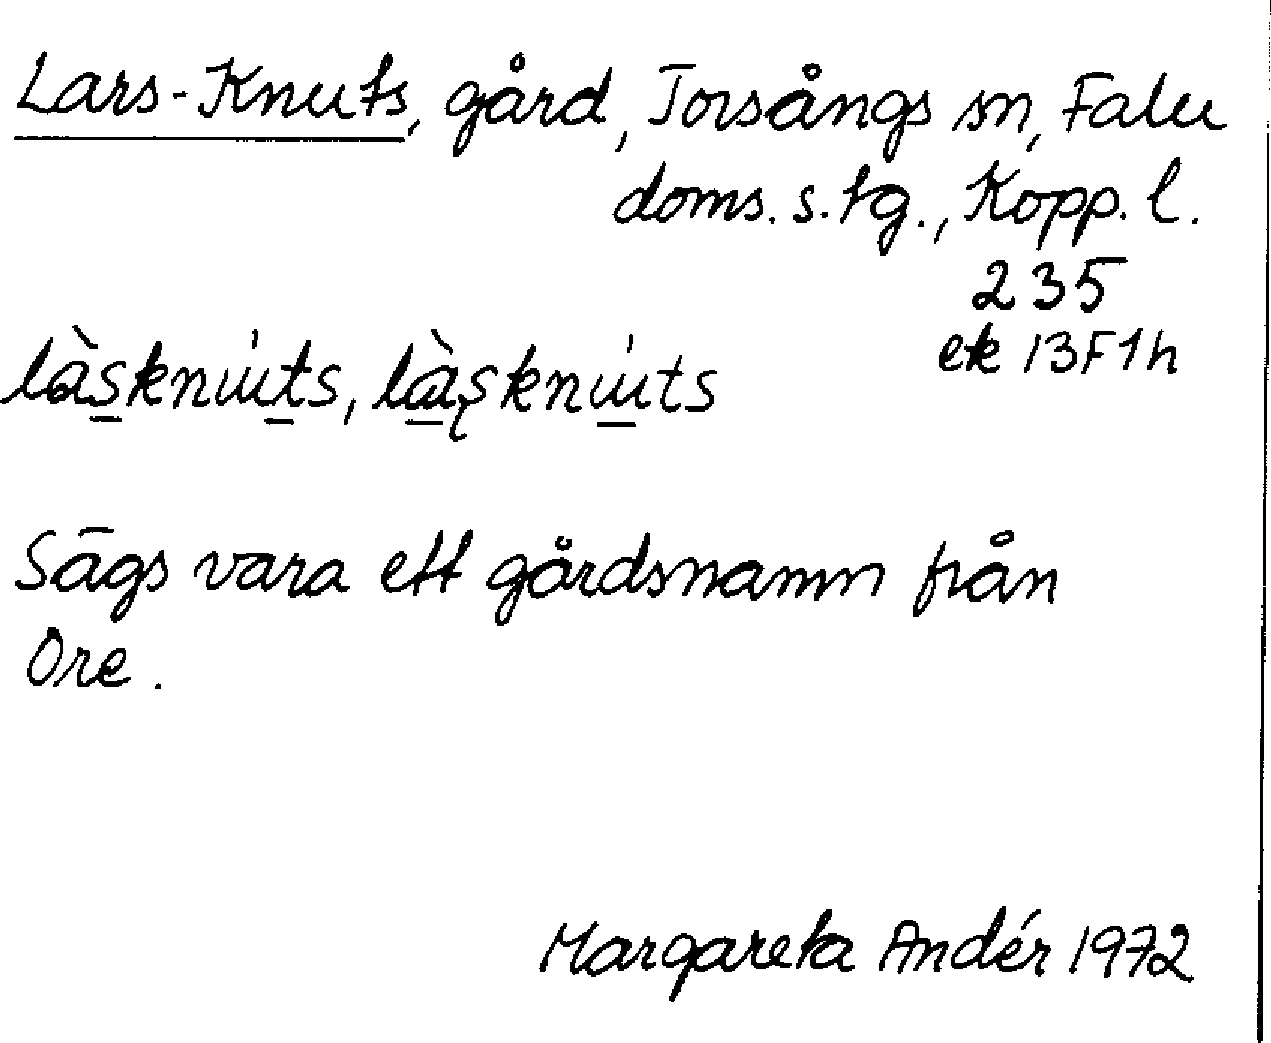 Lars-Knuts, gård, Torsångs sn, Falu
doms. s. tg., Kopp. l.
235
ek 13F1h
làsknu̍ts, làşknu̍ts
Sägs vara ett gårdsnamn från
Ore.
Margareta Andér 1972